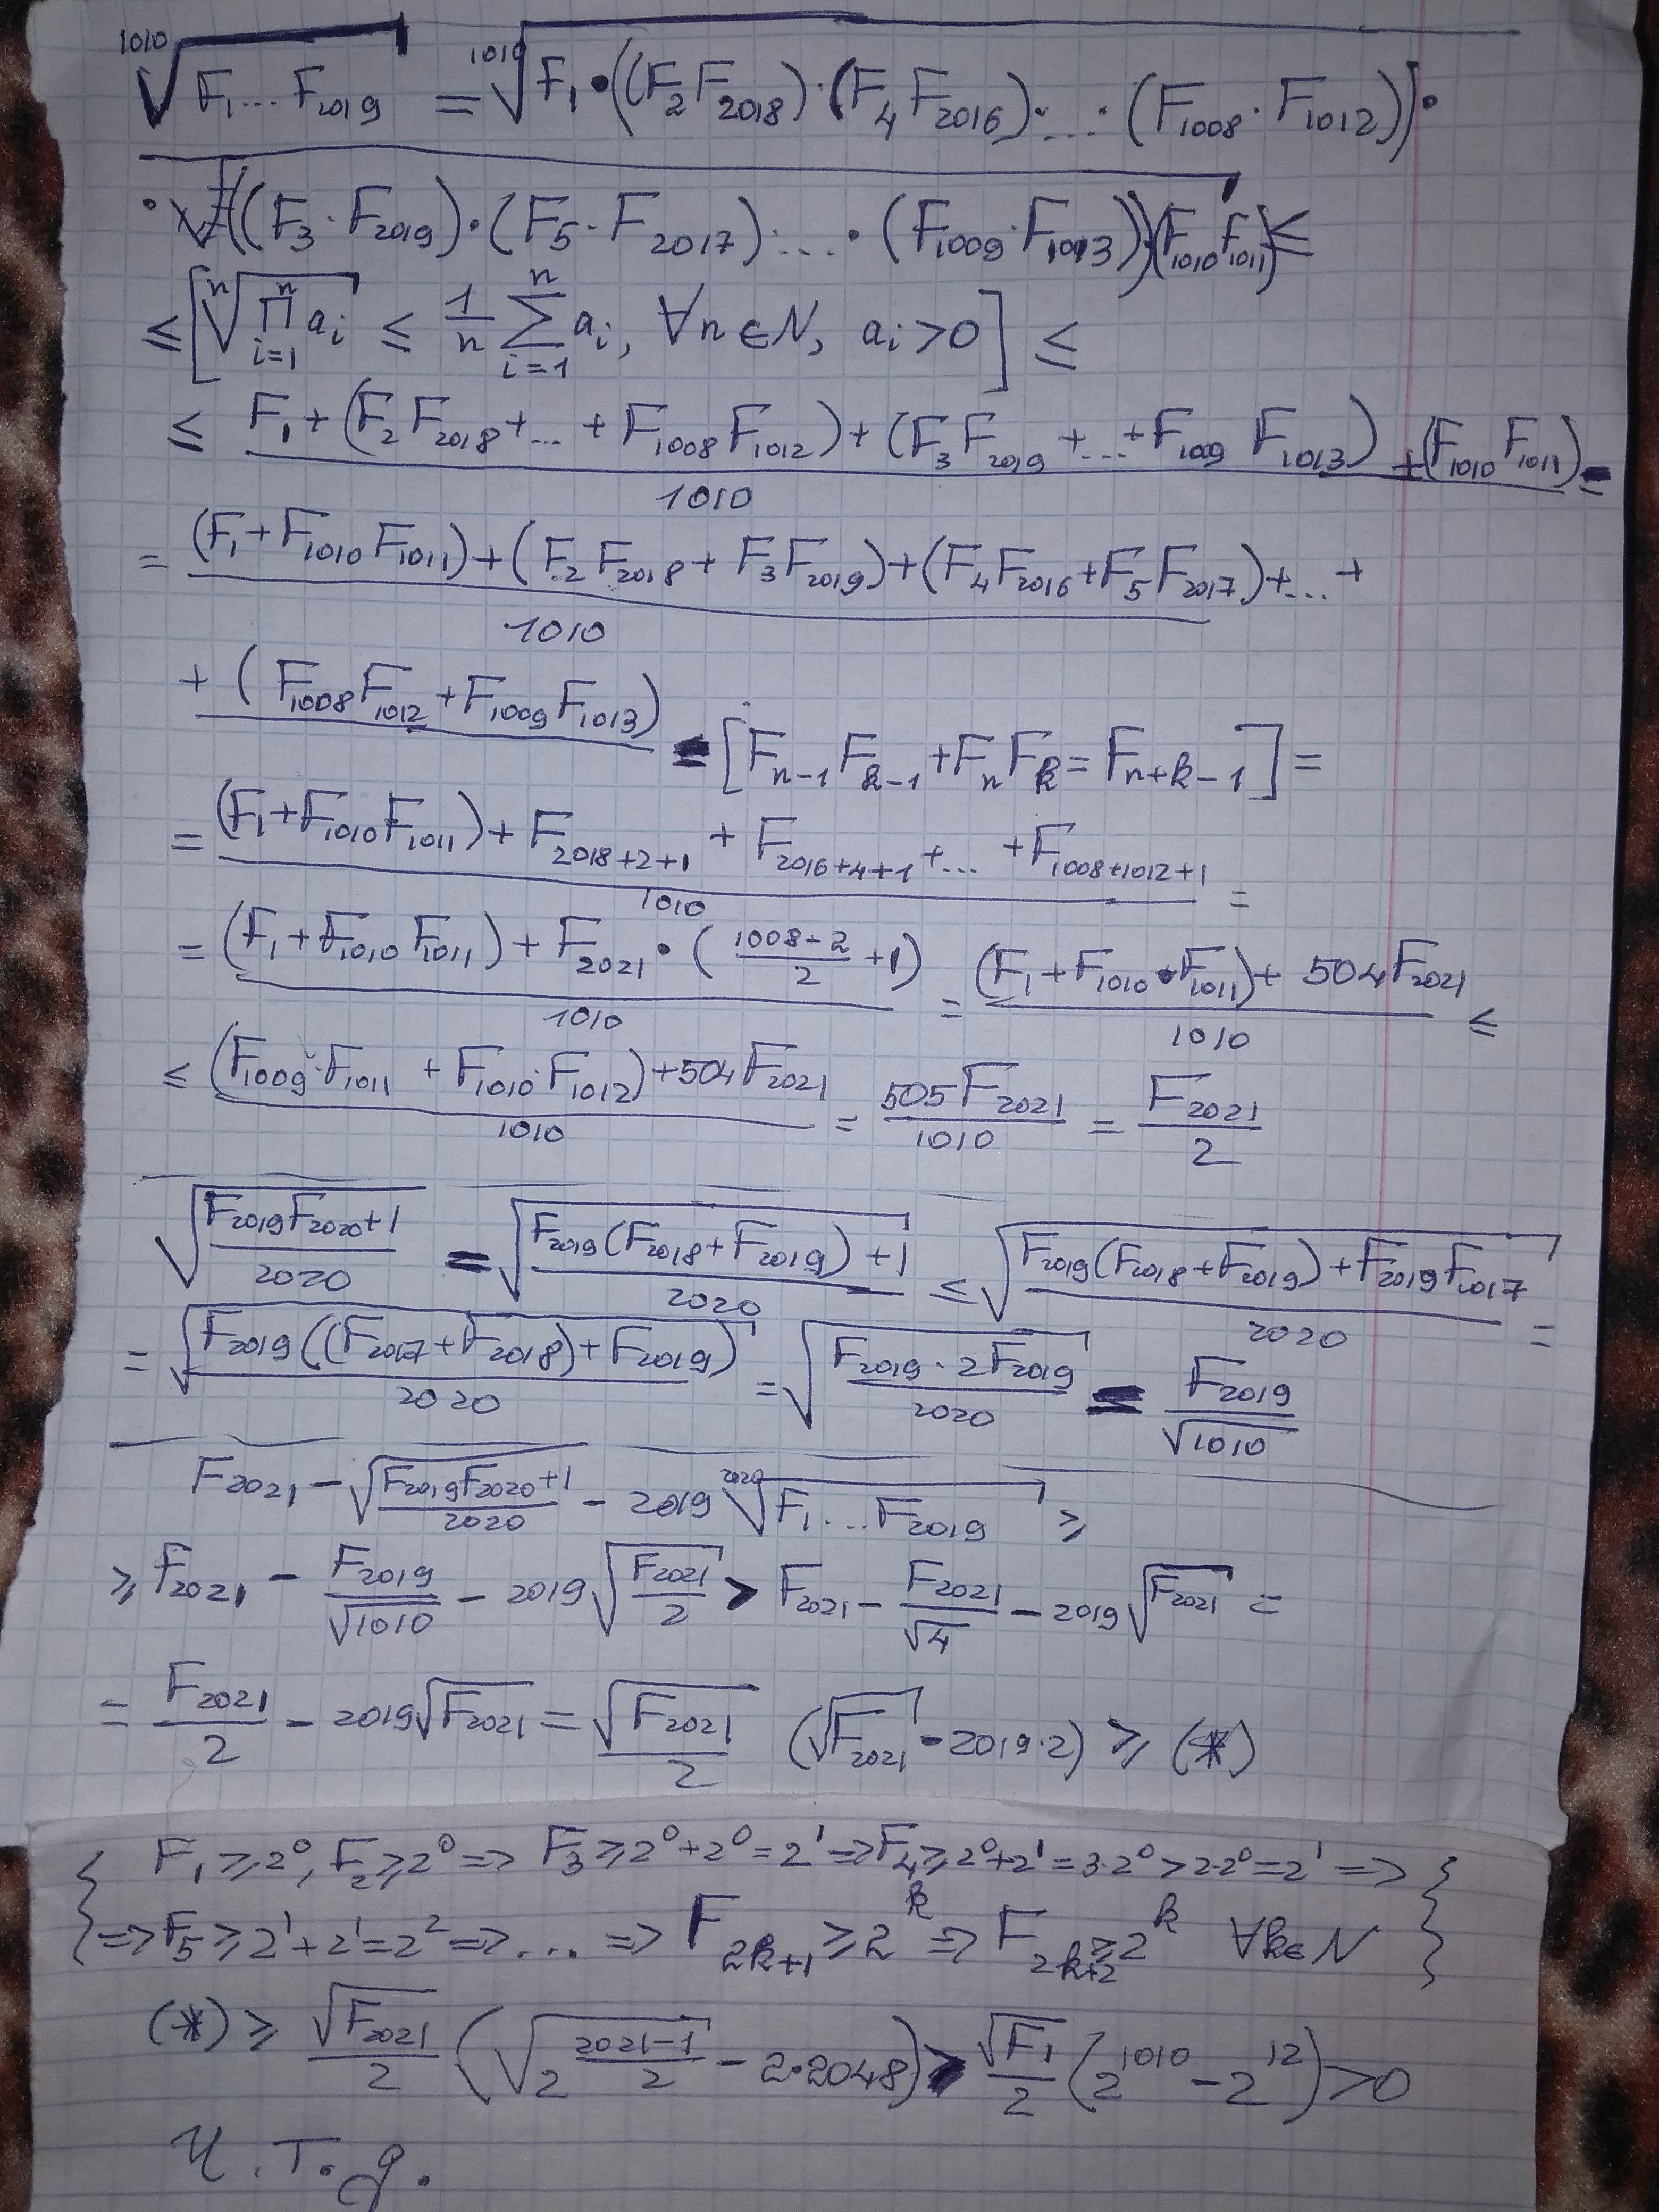 \sqrt[1010]{F_1 ... F_{2019}} = \sqrt[1010]{F_1 • ((F_2 F_{2018}) · (F_4 F_{2016}) · ... · (F_{1008} · F_{1012})) •
• ((F_3 · F_{2019}) • (F_5 · F_{2017}) · ... • (F_{1009} · F_{1013})) (F_{1010} F_{1011})} ≤
≤ [\sqrt[n]{\prod_{i=1}^{n} a_i} ≤ \frac{1}{n} \sum_{i=1}^{n} a_i, ∀n∈N, a_i > 0] ≤
≤ \frac{F_1 + (F_2 F_{2018} + ... + F_{1008} F_{1012}) + (F_3 F_{2019} + ... + F_{1009} F_{1013}) + (F_{1010} F_{1011})}{1010} =
= \frac{(F_1 + F_{1010} F_{1011}) + (F_2 F_{2018} + F_3 F_{2019}) + (F_4 F_{2016} + F_5 F_{2017}) + ... +}{1010}
+ (F_{1008} F_{1012} + F_{1009} F_{1013}) = [F_{n-1} F_{k-1} + F_n F_k = F_{n+k-1}] =
= \frac{(F_1 + F_{1010} F_{1011}) + F_{2018+2+1} + F_{2016+4+1} + ... + F_{1008+1012+1}}{1010} =
= \frac{(F_1 + F_{1010} F_{1011}) + F_{2021} • (\frac{1008-2}{2} + 1)}{1010} = \frac{(F_1 + F_{1010} • F_{1011}) + 504 F_{2021}}{1010} ≤
≤ \frac{(F_{1009} · F_{1011} + F_{1010} · F_{1012}) + 504 F_{2021}}{1010} = \frac{505 F_{2021}}{1010} = \frac{F_{2021}}{2}
\sqrt{\frac{F_{2019} F_{2020} + 1}{2020}} = \sqrt{\frac{F_{2019} (F_{2018} + F_{2019}) + 1}{2020}} ≤ \sqrt{\frac{F_{2019} (F_{2018} + F_{2019}) + F_{2019} F_{2017}}{2020}} =
= \sqrt{\frac{F_{2019} ((F_{2017} + F_{2018}) + F_{2019})}{2020}} = \sqrt{\frac{F_{2019} · 2 F_{2019}}{2020}} = \frac{F_{2019}}{\sqrt{1010}}
F_{2021} - \sqrt{\frac{F_{2019} F_{2020} + 1}{2020}} - 2019 \sqrt[2020]{F_1 ... F_{2019}} ≥
≥ F_{2021} - \frac{F_{2019}}{\sqrt{1010}} - 2019 \sqrt{\frac{F_{2021}}{2}} > F_{2021} - \frac{F_{2021}}{\sqrt{4}} - 2019 \sqrt{F_{2021}} =
= \frac{F_{2021}}{2} - 2019 \sqrt{F_{2021}} = \frac{\sqrt{F_{2021}}}{2} (\sqrt{F_{2021}} - 2019·2) ≥ (*)
{ F_1 ≥ 2^0, F_2 ≥ 2^0 => F_3 ≥ 2^0 + 2^0 = 2^1 => F_4 ≥ 2^0 + 2^1 = 3·2^0 > 2·2^0 = 2^1 => }
{ => F_5 ≥ 2^1 + 2^1 = 2^2 => ... => F_{2k+1} ≥ 2^k => F_{2k+2} ≥ 2^k ∀k∈N }
(*) ≥ \frac{\sqrt{F_{2021}}}{2} (\sqrt{2^{\frac{2021-1}{2}}} - 2•2048) > \frac{\sqrt{F_1}}{2} (2^{1010} - 2^{12}) > 0
Ч.т.д.